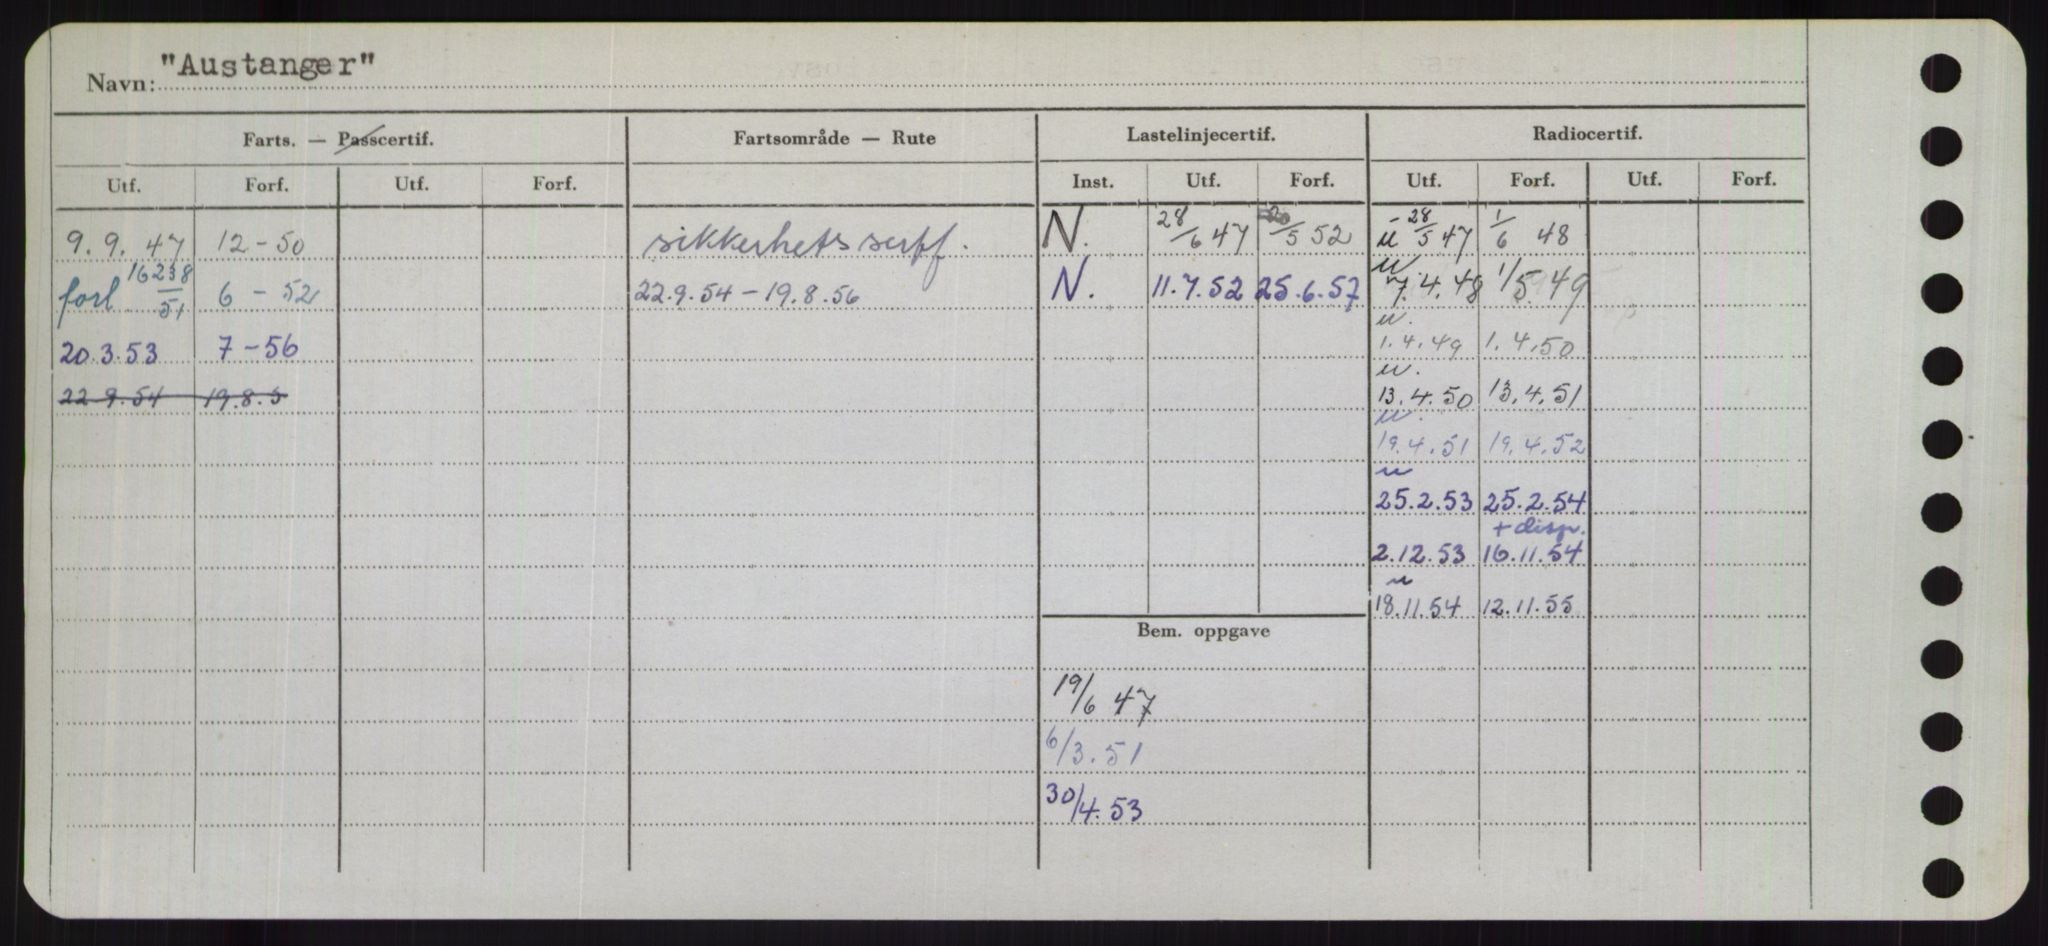 Navn: "Austanger"
Farts. — Passcertif. Fartsområde — Rute Lastelinjecertif. Radiocertif.
Utf. Forf. Utf. Forf. Inst. Utf. Forf. Utf. Forf. Utf. Forf.
9. 9. 47 12-50 sikkerhets sertf. N. 28/6 47 /5 52 u 28/5 47 1/6 48
forl 16238/51 6-52 22.9.54-19.8.56 N. 11.7.52 25.6.57 u 7.4.48 1/5 49
20.3.53 7-56 u. 1.4.49 1.4.50
22.9.54 19.8.5 u. 13.4.50 13.4.51
u. 19.4.51 19.4.52
u 25.2.53 25.2.54
+ disp.
2.12.53 16.11.54
u 18.11.54 12.11.55
Bem. oppgave
19/6 47
6/3.51
30/4.53